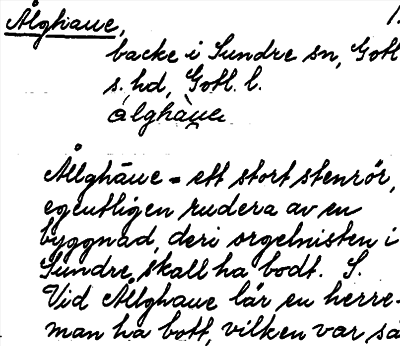 Ålghaue,
backe i Sundre sn, Gotl
s. hd, Gotl. l.
álghàue
Ållghāue = ett stort stenrör,
egentligen rudera av en
byggnad, deri orgelnisten i
Sundre, skall ha bodt. S.
Vid Ållghaue lär en herre-
man ha bott, vilken var så